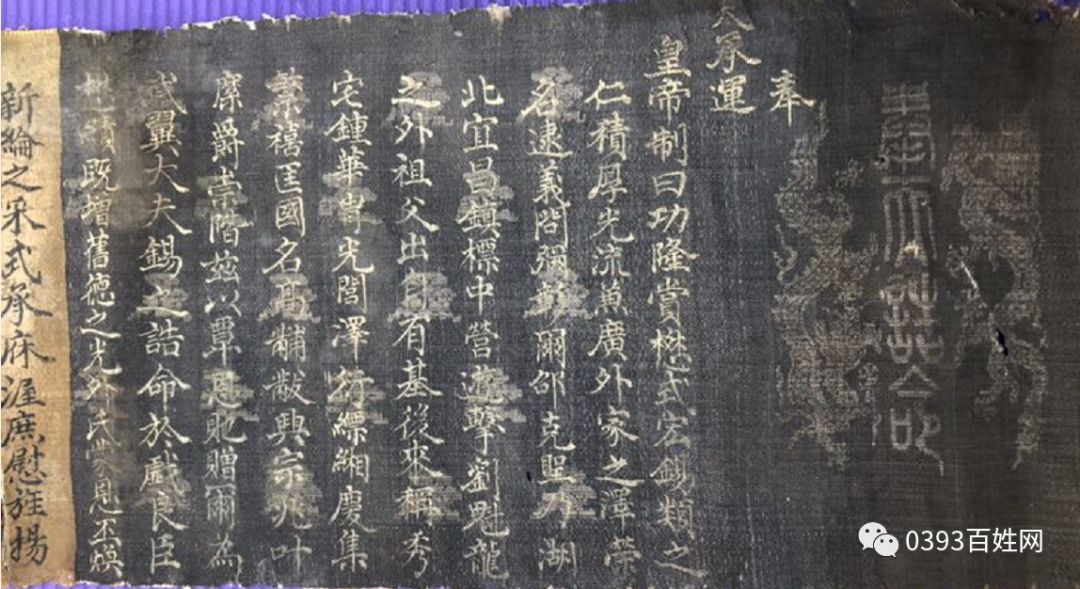 奉天誥命
奉
天承運
皇帝制曰功隆賞懋式宏錫類之
仁積厚光流煎廣外家之澤榮
名逮義問彌彰爾邵克聖乃湖
北宜昌鎮標中營遊擊劉魁龍
之外祖父出自有基後來稱秀
宅鍾華胄光閭澤衍縹緗慶集
業禧匡國名高黼黻興宗兆叶
縻爵崇階茲以覃恩貤贈爾為
武翼大夫錫之誥命於戲良臣
懋績既增舊德之光外氏蒙恩丕煥
新綸之采式承庥渥庶慰旌揚
0393百姓网